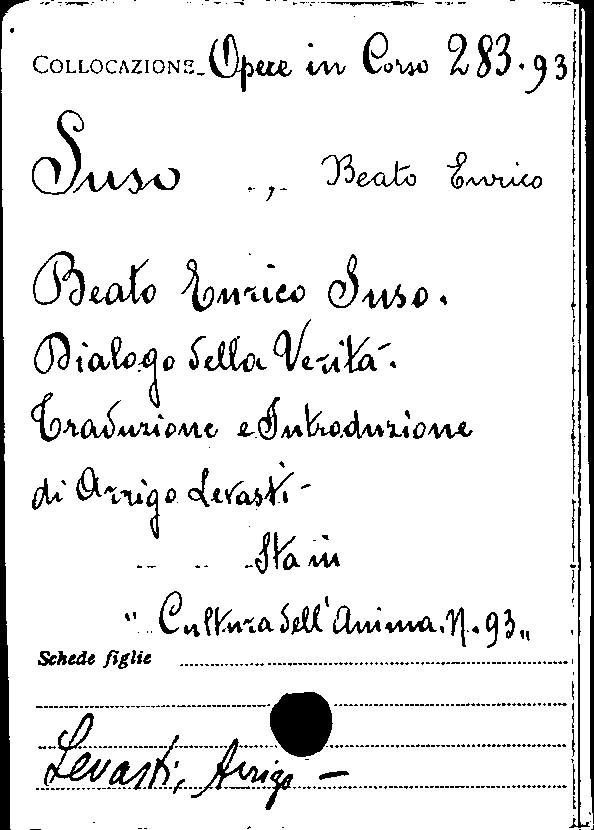 COLLOCAZIONE Opere in Corso 283.93
Suso , Beato Enrico
Beato Enrico Suso.
Dialogo della Verità.
Traduzione e Introduzione
di Arrigo Levasti -
Sta in
"Cultura dell'Anima. N. 93"
Schede figlie
Levasti, Arrigo -